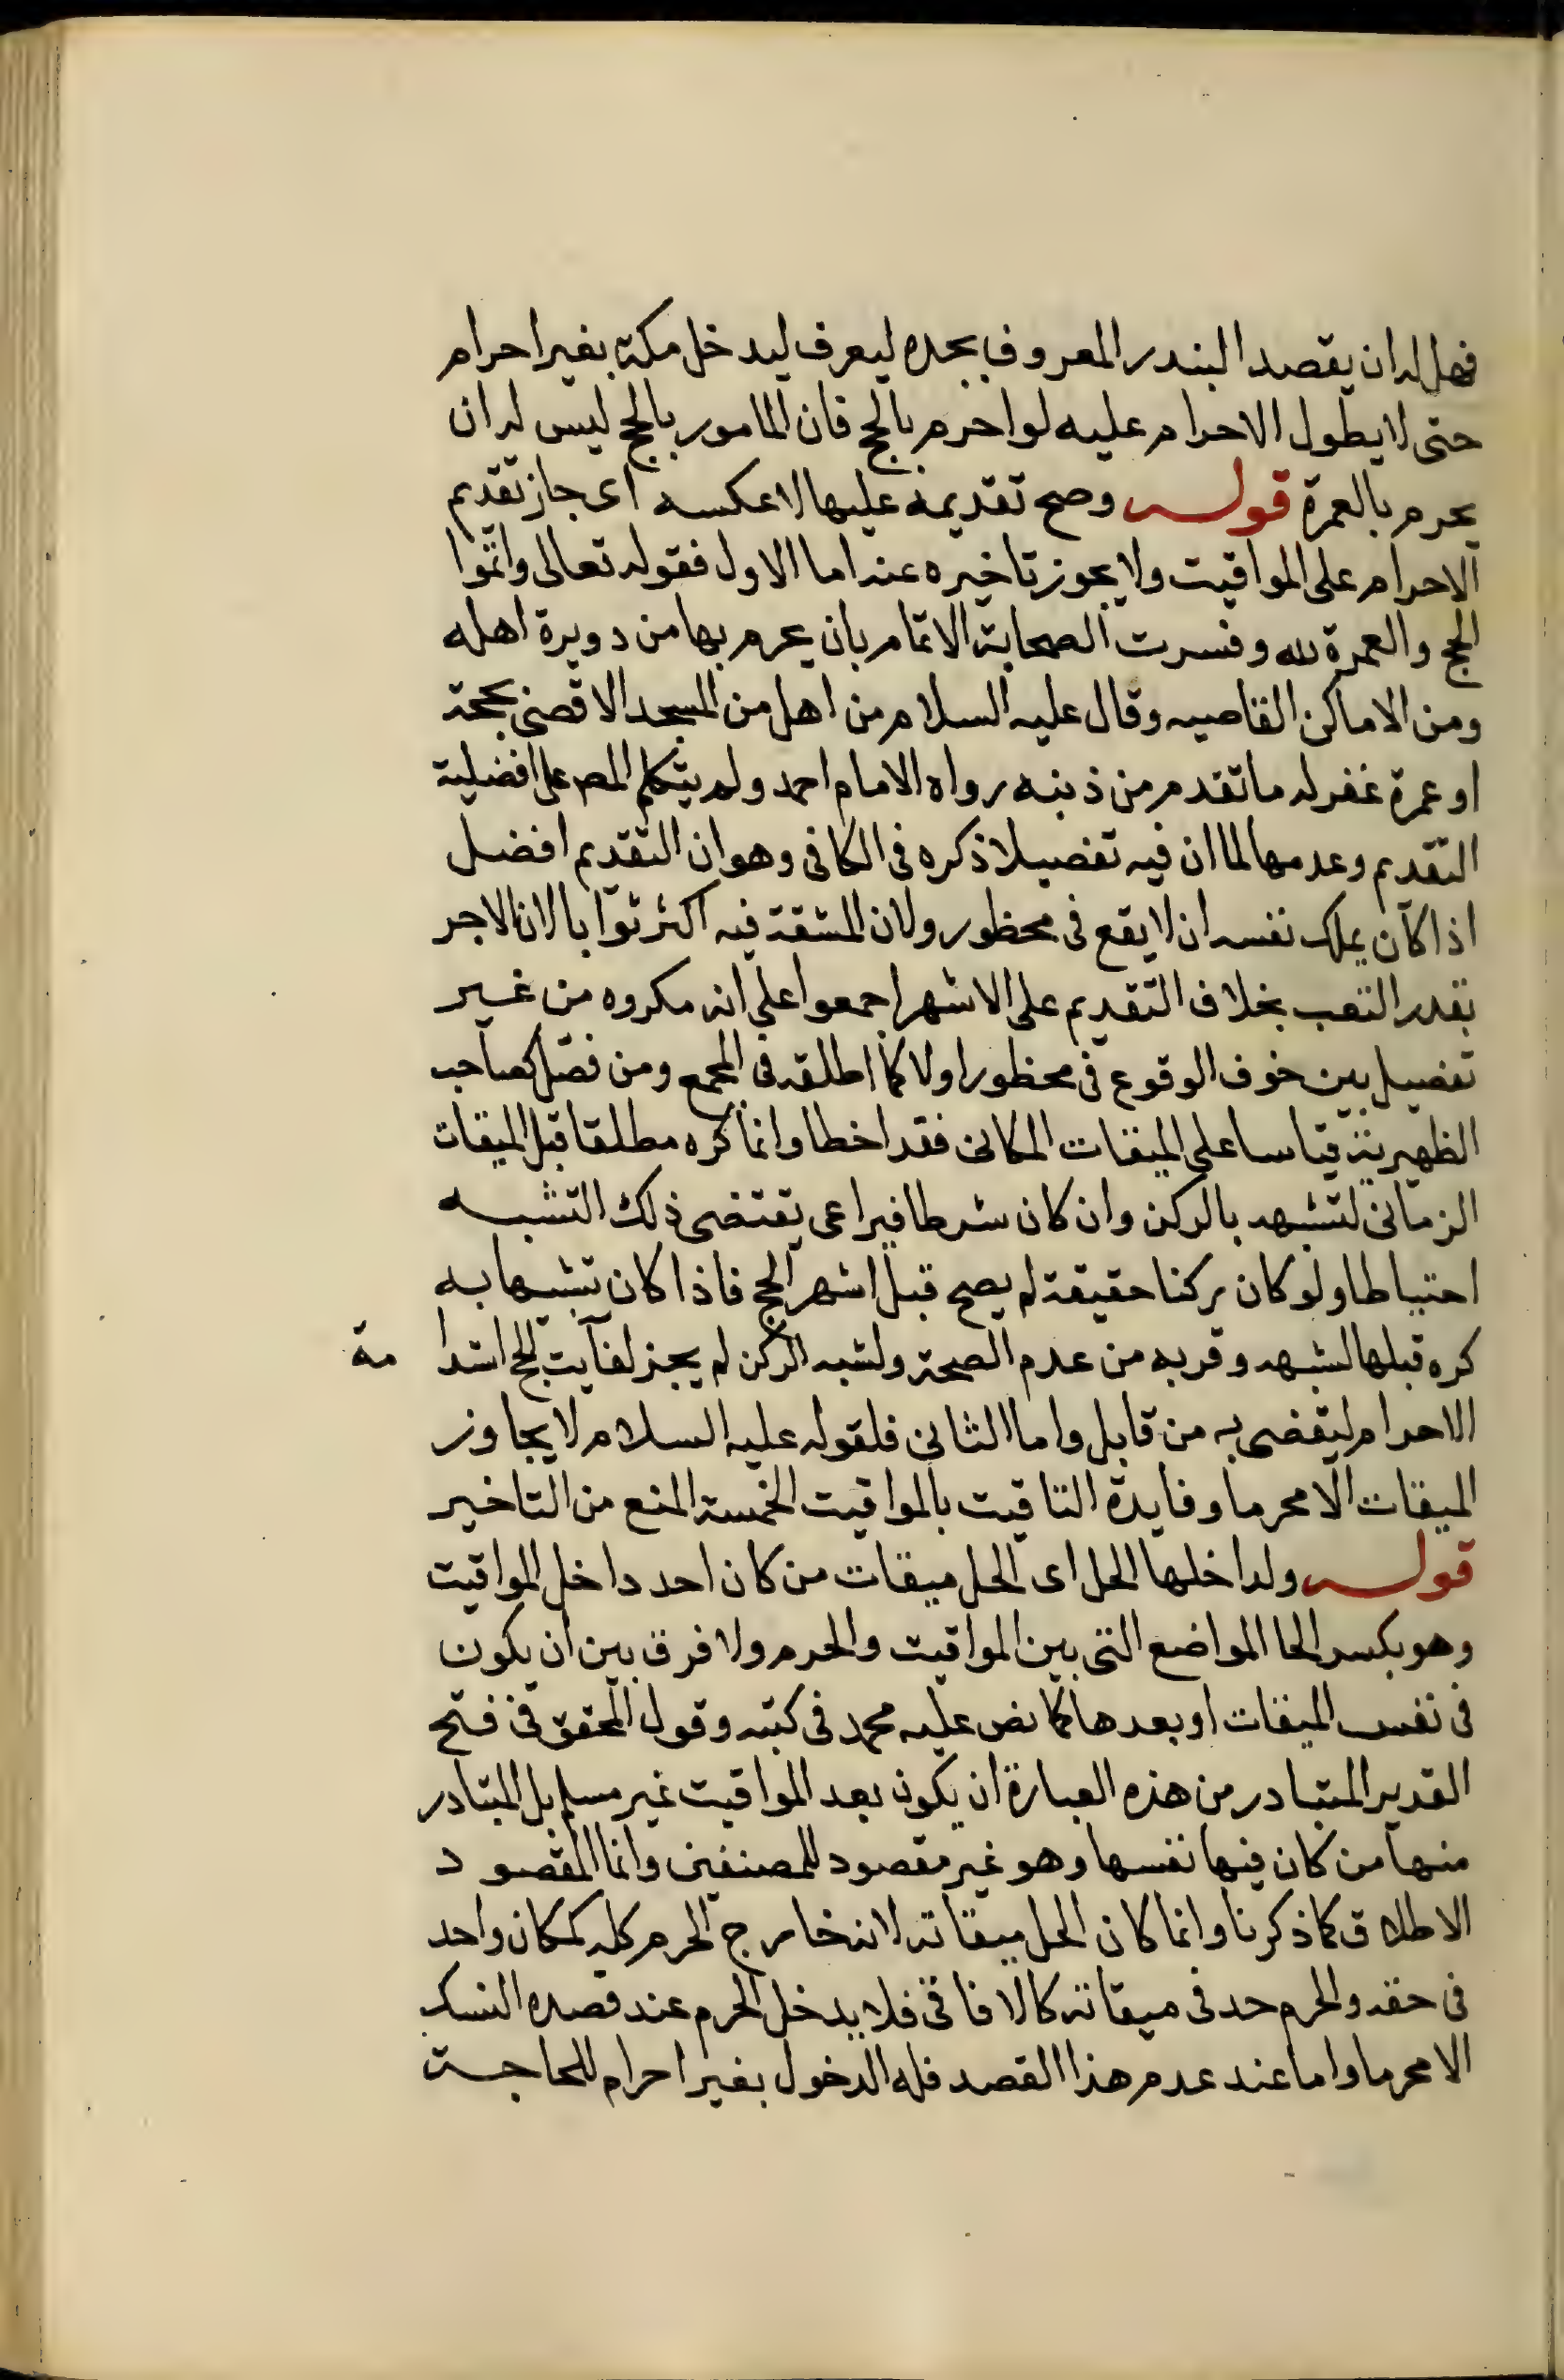 فهل له ان يقصد البندر المعروف بجده ليعرف ليدخل مكة بغير احرام
حتى لا يطول الاحرام عليه لو احرم بالحج فان المامور بالحج ليس له ان
يحرم بالعمرة قوله وصح تقديمه عليها لا عكسه اى جاز تقديم
الاحرام على المواقيت ولا يجوز تاخيره عنه اما الاول فقوله تعالى واتموا
الحج والعمرة لله وفسرت الصحابة الاتمام بان يحرم بها من دويرة اهله
ومن الاماكن القاصيه وقال عليه السلام من اهل من المسجد الاقصى بحجة
او عمرة غفر له ما تقدم من ذنبه رواه الامام احمد ولم يتكلم المص على افضلية
التقديم وعدمها لما ان فيه تفصيلا ذكره فى الكافى وهو ان التقديم افضل
اذا كان يملك نفسه ان لا يقع فى محظور ولان المشقة فيه اكثر ثوابا لان الاجر
بقدر التعب بخلاف التقديم على الاشهر اجمعوا على انه مكروه من غير
تفصيل بين خوف الوقوع فى محظور اولا كما اطلقه فى المجمع ومن فصّل كصاحب
الظهيرية قياسا على الميقات المكانى فقد اخطا وانما كره مطلقا قبل الميقات
الزمانى لتشبهه بالركن وان كان شرطا فيراعى يقتضى ذلك التشبه
احتياطا ولو كان ركنا حقيقة لم يصح قبل اشهر الحج فاذا كان تشبيها به
كره قبلها لشبهه وقربه من عدم الصحة ولشبه الركن لم يجز لفآيت الحج استدا مة
الاحرام ليقضى به من قابل واما الثانى فلقوله عليه السلام لا يجاوز
الميقات الا محرما وفايدة التاقيت بالمواقيت الخمسة المنع من التاخير
قوله ولداخلها الحل اى الحل ميقات من كان احد داخل المواقيت
وهو بكسر الحا المواضع التى بين المواقيت والحرم ولا فرق بين ان يكون
فى نفس الميقات او بعدها كما نص عليه محمد فى كتبه وقول المحقق فى فتح
القدير المتبادر من هذه العبارة ان يكون بعد المواقيت غير مسلم بل المتبادر
منها من كان فيها نفسها وهو غير مقصود للمصنفين وانما المقصود
الاطلاق كما ذكرنا وانما كان الحل ميقاته لان خارج الحرم كله كمكان واحد
فى حقه والحرم حد فى ميقاته كالافاقى فلا يدخل الحرم عند قصده النسك
الا محرما واما عند عدم هذا القصد فله الدخول بغير احرام للحاجة